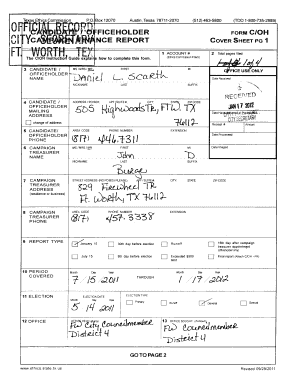 Texas Ethics Commission P.O. Box 12070 Austin, Texas 78711-2070 (512) 463-5800 (TDD 1-800-735-2989)
OFFICIAL RECORD
CITY SECRETARY
FT. WORTH, TEX
CANDIDATE / OFFICEHOLDER
CAMPAIGN FINANCE REPORT
FORM C/OH
COVER SHEET PG 1
The C/OH Instruction Guide explains how to complete this form.
1 ACCOUNT #
2 Total pages filed:
3 CANDIDATE / OFFICEHOLDER NAME
MS / MRS / MR FIRST MI
Daniel L. Scarth
NICKNAME LAST SUFFIX
OFFICE USE ONLY
Date Received
RECEIVED
JAN 17 2012
CITY SECRETARY
4 CANDIDATE / OFFICEHOLDER MAILING ADDRESS
change of address
ADDRESS / PO BOX; APT / SUITE #; CITY; STATE; ZIP CODE
505 Highwoods Tr, FTW TX
76112
5 CANDIDATE/ OFFICEHOLDER PHONE
AREA CODE PHONE NUMBER EXTENSION
(817)
Receipt # Amount
Date Processed
Date Imaged
6 CAMPAIGN TREASURER NAME
MS / MRS / MR FIRST MI
John D
NICKNAME LAST SUFFIX
Burge
7 CAMPAIGN TREASURER ADDRESS
(residence or business)
829 Firewheel TR
Ft. Worth, TX 76112
8 CAMPAIGN TREASURER PHONE
AREA CODE PHONE NUMBER EXTENSION
(817) 457-3338
9 REPORT TYPE
January 15 30th day before election Runoff 15th day after campaign treasurer appointment (officeholder only)
July 15 8th day before election Exceeded $500 limit Final report (Attach C/OH - FR)
10 PERIOD COVERED
Month Day Year Month Day Year
7 15 2011 THROUGH 1 17 2012
11 ELECTION
ELECTION DATE
Month Day Year
5 14 2011
ELECTION TYPE
Primary Runoff General Special
12 OFFICE
OFFICE HELD (if any)
FW City Councilmember
District 4
13 OFFICE SOUGHT (if known)
FW Councilmember
District 4
GO TO PAGE 2
www.ethics.state.tx.us Revised 09/28/2011